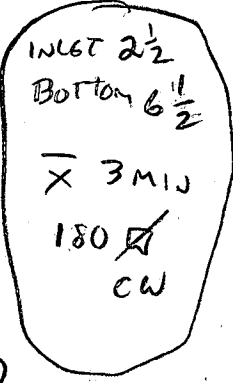 INLET 2 1/2
BOTTOM 6 1/2"
X̄ 3 MIN
180
CW